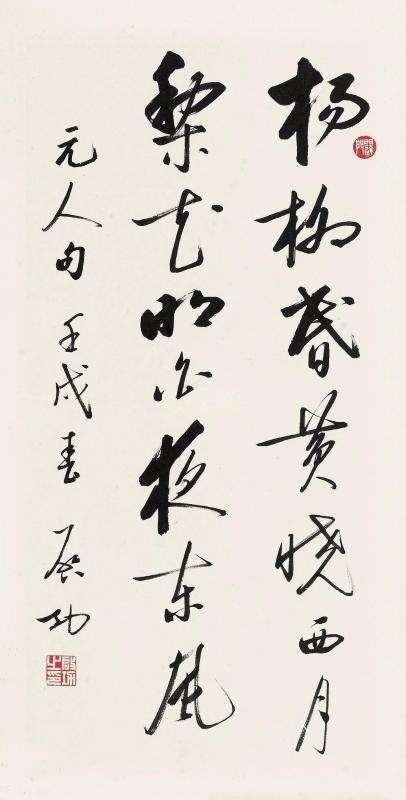 杨柳昏黄晓西月
梨花明白夜东风
元人句 壬戌春 启功